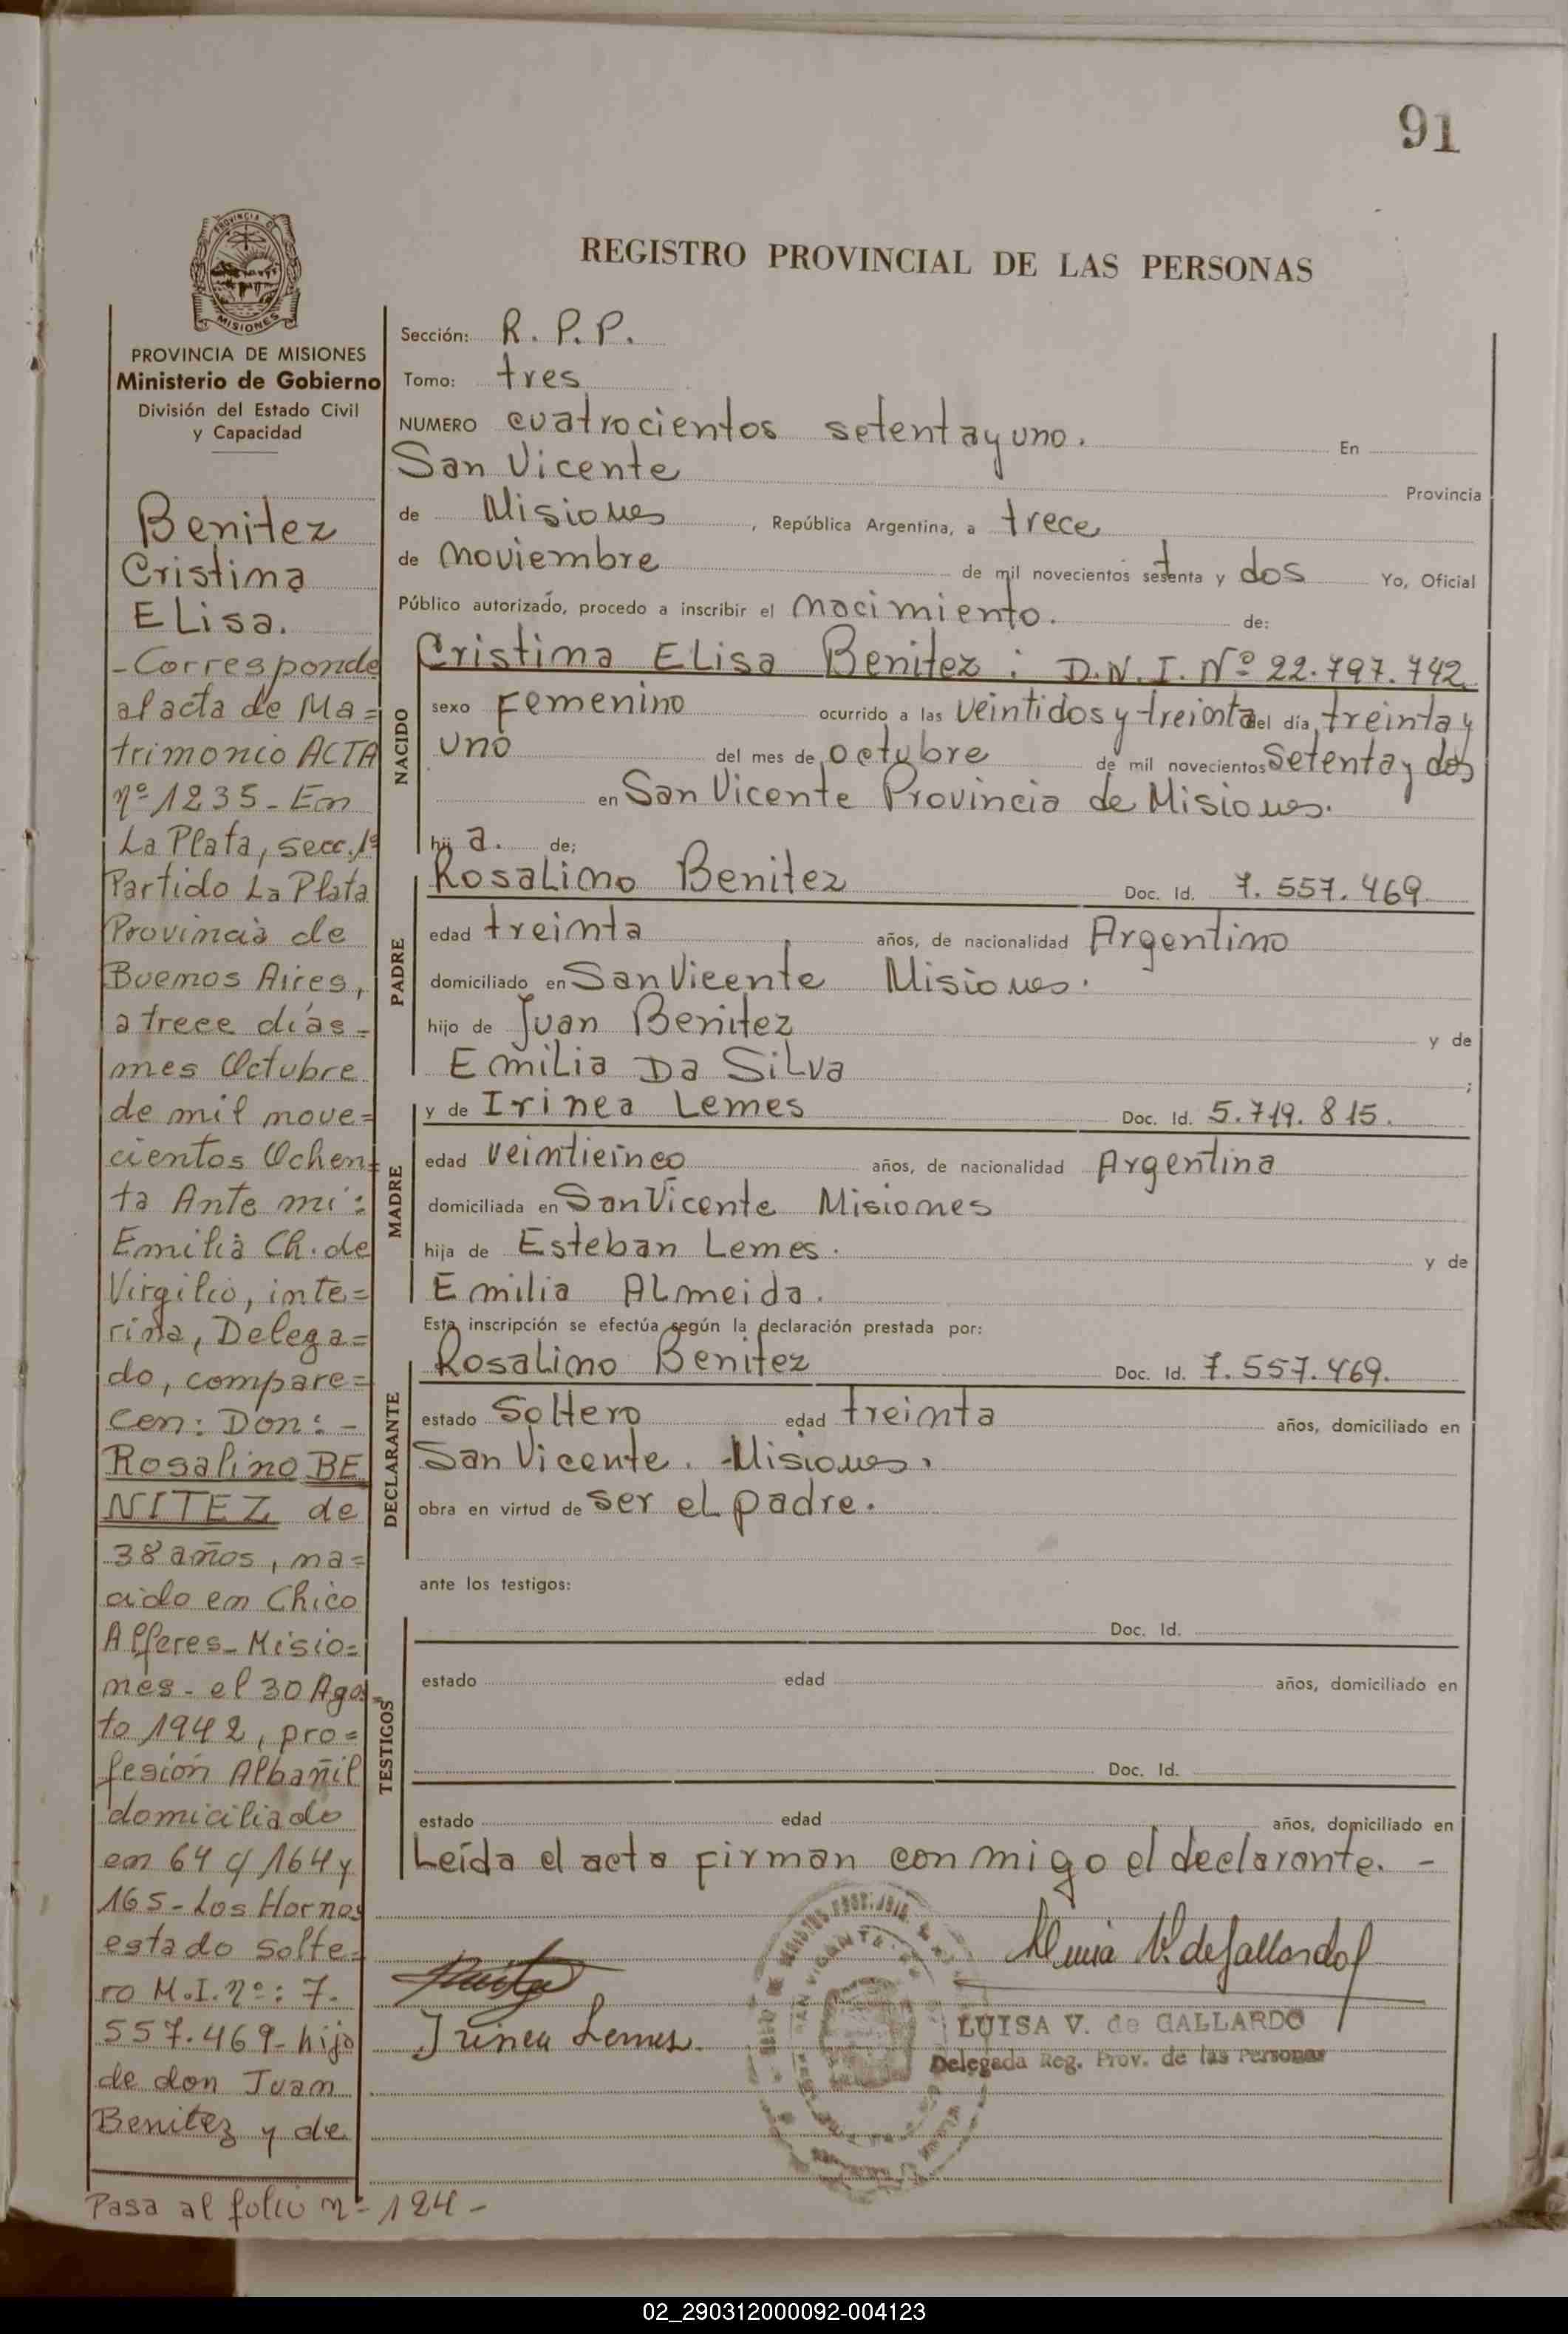 91
PROVINCIA DE
MISIONES
REGISTRO PROVINCIAL DE LAS PERSONAS
PROVINCIA DE MISIONES
Ministerio de Gobierno
División del Estado Civil
y Capacidad
Benitez
Cristina
ELisa.
-Corresponde
al acta de Ma=
trimonio ACTA
nº 1235- En
La Plata, secc. 1ª
Partido La Plata
Provincia de
Buenos Aires,
a trece días=
mes Octubre
de mil nove=
cientos Ochen=
ta Ante mi:
Emilia Ch. de
Virgilio, inte=
rina, Delega=
do, compare=
cen: Don: -
Rosalino BE
NITEZ de
38 años, na=
cido en Chico
Alferes- Misio=
nes- el 30 Agos=
to 1942, pro=
fesión Albañil
domiciliado
en 64 c/ 164 y
165- Los Hornos
estado solte=
ro M.I. nº: 7.
557.469- hijo
de don Juan
Benitez y de
Pasa al folio nº 124-
Sección: R. P. P.
Tomo: tres
NUMERO cuatrocientos setenta y uno. En
San Vicente Provincia
de Misiones, República Argentina, a trece
de noviembre de mil novecientos setenta y dos Yo, Oficial
Público autorizado, procedo a inscribir el nacimiento. de:
NACIDO
Cristina ELisa Benitez: D.N.I. Nº 22.797.742
sexo Femenino ocurrido a las veintidos y treinta del día treinta y
uno del mes de octubre de mil novecientos setenta y dos
en San Vicente Provincia de Misiones.
hij a. de;
PADRE
RosaLino Benitez Doc. Id. 7.557.469.
edad treinta años, de nacionalidad Argentino
domiciliado en San Vicente Misiones.
hijo de Juan Benitez y de
EmiLia Da SiLva ;
MADRE
y de Irinea Lemes Doc. Id. 5.719.815.
edad veinticinco años, de nacionalidad Argentina
domiciliada en San Vicente Misiones
hija de Esteban Lemes. y de
Emilia ALmeida.
Esta inscripción se efectúa según la declaración prestada por:
DECLARANTE
RosaLino Benitez Doc. Id. 7.557.469.
estado Soltero edad treinta años, domiciliado en
San Vicente. Misiones.
obra en virtud de ser el padre.
ante los testigos:
TESTIGOS
Doc. Id.
estado edad años, domiciliado en
Doc. Id.
estado edad años, domiciliado en
Leída el acta firman conmigo el declarante. -
V. de Gallardo
Irinea Lemes.
LUISA V. de GALLARDO
Delegada Reg. Prov. de las Personas
02_290312000092-004123